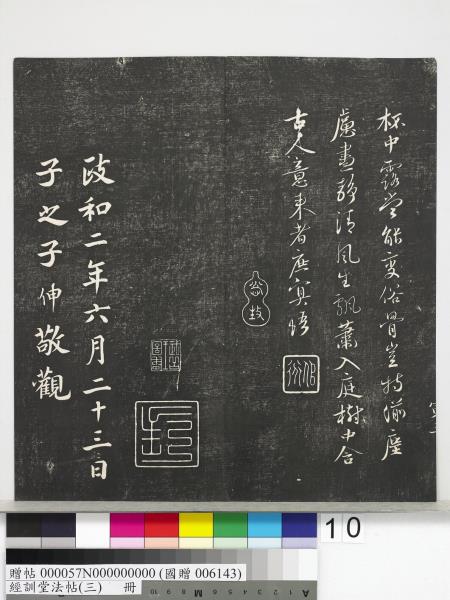 杯中露當能變俗骨豈特湔塵
慮晝靜清風生飄蕭入庭樹中含
古人意來者庶冥悟
政和二年六月二十三日
子之子伸敬觀
10
贈帖 000057N000000000 (國贈 006143)
經訓堂法帖(三) 冊